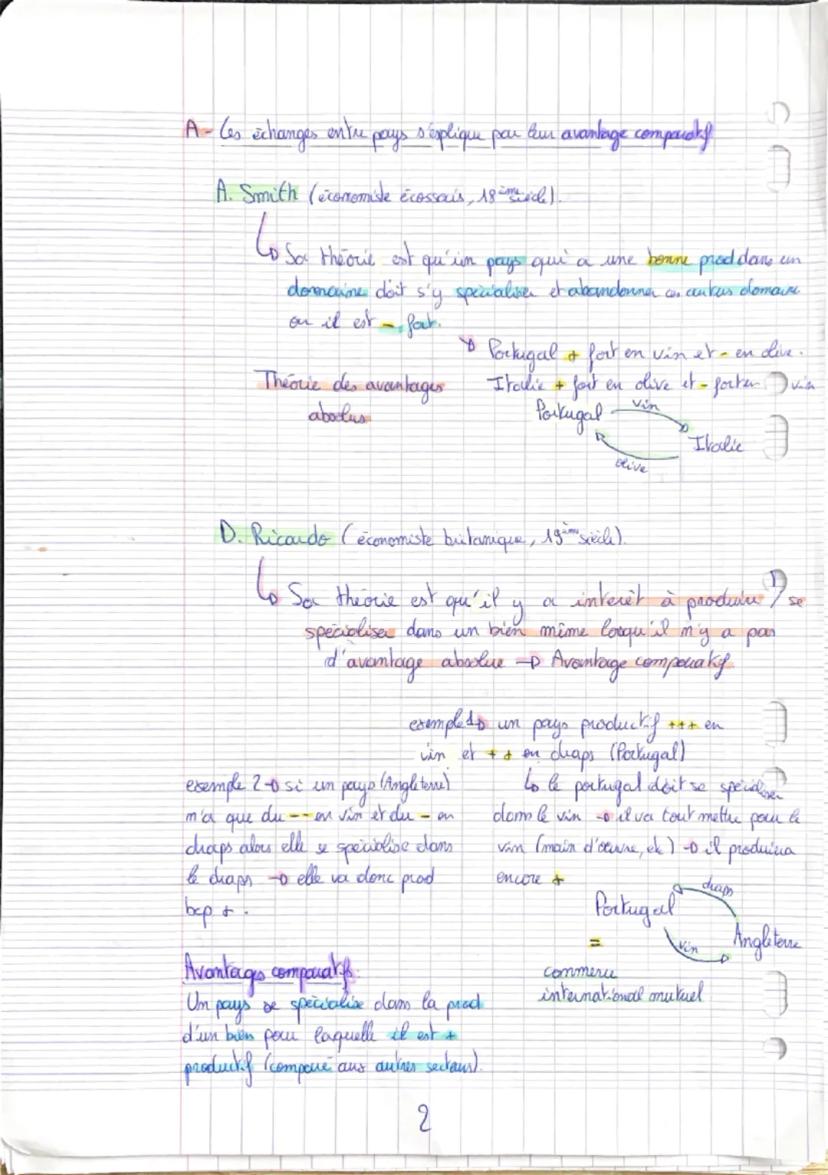 A- Les échanges entre pays s'éxplique par leur avantage comparatif
A. Smith (économiste écossais, 18ème siècle).
↳ Sa théorie est qu'un pays qui a une bonne prod dans un
domaine doit s'y spécialiser et abandonner ces autres domaine
ou il est - fort.
↳ Portugal + fort en vin et - en olive.
Théorie des avantages
absolus
Italie + fort en olive et - fort en vin
Portugal
vin
Italie
olive
D. Ricardo (économiste britanique, 19ème siècle).
↳ Sa théorie est qu'il y a interêt à produire / se
spécialiser dans un bien même lorsqu'il n'y a pas
d'avantage absolue → Avantage comparatif
exemple 1 → un pays productif +++ en
vin et ++ en draps (Portugal)
↳ le portugal doit se spécialiser
dans le vin → il va tout mettre pour le
vin (main d'œuvre, etc) → il produira
encore +
exemple 2 → si un pays (Angleterre)
n'a que du -- en vin et du - en
draps alors elle se spécialise dans
le draps → elle va donc prod
bcp +.
Portugal
draps
Angleterre
vin
=
commerce
international mutuel
Avantages comparatifs:
Un pays se spécialise dans la prod
d'un bien pour laquelle il est +
productif (comparé aux autres secteurs).
2